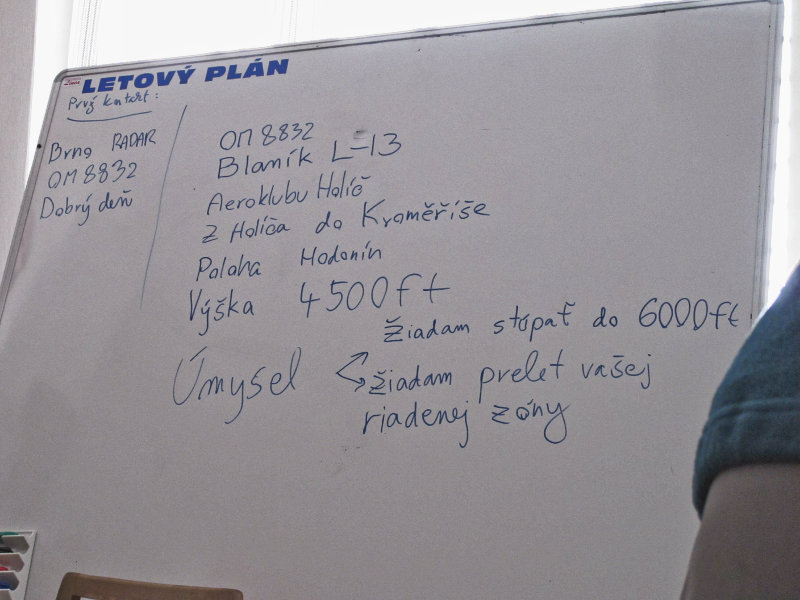 LETOVÝ PLÁN
Prvý kontakt:
Brno RADAR
OM 8832
Dobrý deň
OM 8832
Blaník L-13
Aeroklubu Holíč
Z Holíča do Kroměříše
Poloha Hodonín
Výška 4500ft
Úmysel
Žiadam stúpať do 6000ft
žiadam prelet vašej
riadenej zóny